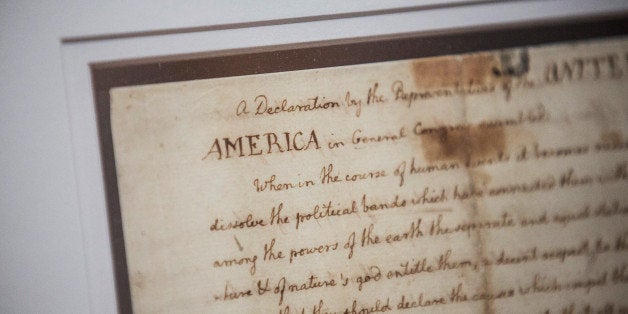 A Declaration by the Representatives of the UNITE
AMERICA in General Congress assembled.
When in the course of human events it becomes
dissolve the political bands which have connected them with
among the powers of the earth the separate and equal
& of nature's god entitle them, a decent respect to the
they should declare the causes which impel the